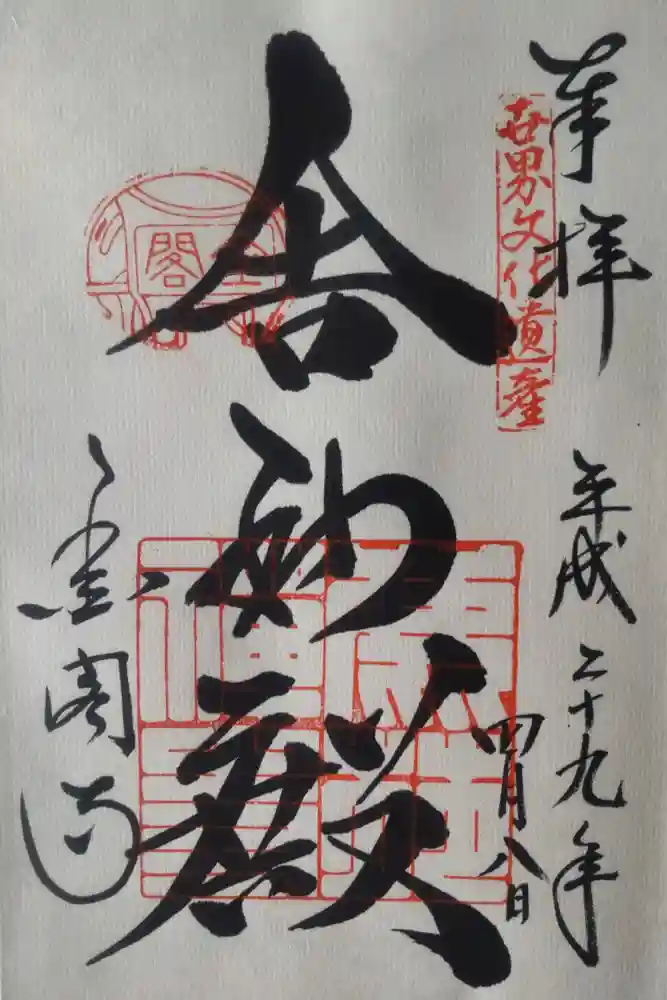 奉拝
世界文化遺産
平成二十九年
四月八日
舎利殿
金閣
金閣寺